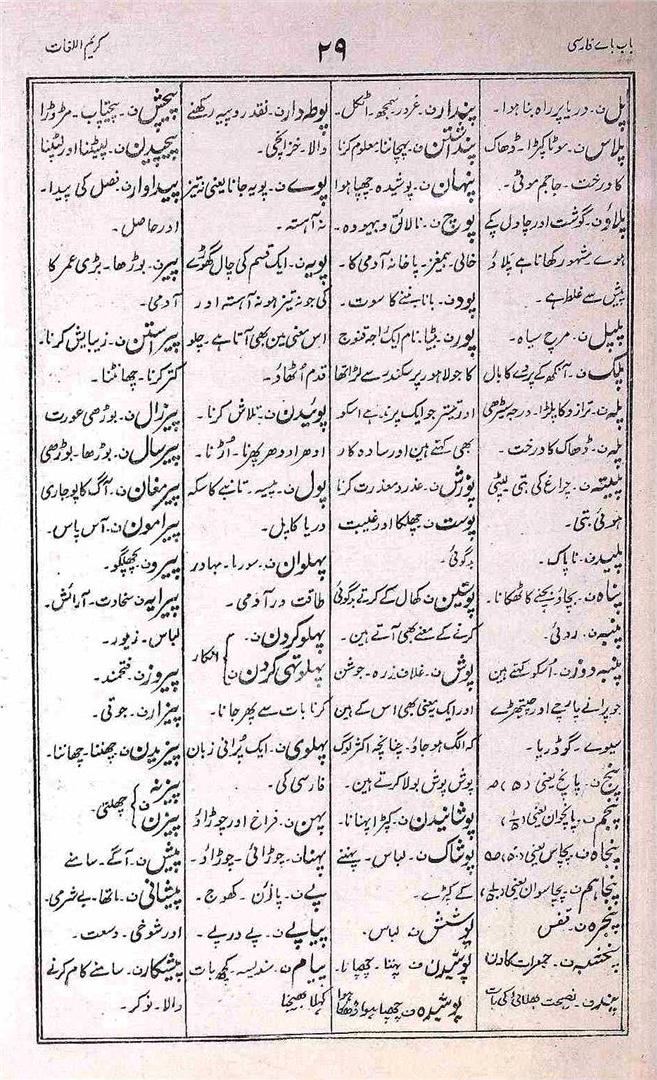 باب بائے فارسی
۲۹
کریم اللغات
پل ن۔ دریا پر راہ بنا ہوا۔
پلاس ن۔ موٹا کپڑا۔ ڈھاک
کا درخت۔ جاجم موٹی۔
پلاؤ ن۔ گوشت اور چاول پکے
ہوے مشہور کھانا ہے پلاؤ
پیش سے غلط ہے۔
پلپل ن۔ مرچ سیاہ۔
پلک ن۔ آنکھ کے پردے کا بال
پلہ ن۔ ترازو کا پلڑا۔ درجہ سیڑھی
پلہ ن۔ ڈھاک کا درخت۔
پلیتہ ن۔ چراغ کی بتی لپٹی
ہوئی بتی۔
پلید ن۔ ناپاک۔
پناہ ن۔ بچاؤ بچنے کا ٹھکانا۔
پنبہ ن۔ روئی۔
پنبہ دوز ن۔ اُسکو کہتے ہین
جو پرانے پارچے اور چیتھڑے
سیوے۔ گوڈریا۔
پنج ن۔ پانچ یعنی (۵)
پنجم ن۔ پانچوان یعنی
پنجاہ ن۔ پچاس یعنی (۵۰)
پنجاہم ن۔ پچاسوان یعنی
پنجرہ ن۔ قفس
پنجشنبہ ن۔ جمعرات کا دن
پند ن۔ نصیحت بھلائی کی بات
پندار ن۔ غرور سمجھ۔ اٹکل۔
پنداشتن ن۔ پہچاننا معلوم کرنا
پنہان ن۔ پوشیدہ چھپا ہوا
پوچ ن۔ نالائق و بیہودہ۔
خالی۔ بیمغز۔ پاخانہ آدمی کا۔
پود ن۔ بانا بننے کا سوت۔
پور ن۔ بیٹا۔ نام ایک راجہ قنوج
کا جو لاہور پر سکندر سے لڑا تھا
اور تیتر جو ایک پرند ہے اسکو
بھی کہتے ہین اور سادہ کار
پوزش ن۔ عذر و معذرت کرنا
پوست ن۔ چھلکا اور غیبت
بدگوئی۔
پوستین ن۔ کھال کے کرتے بدگوئی
کرنے کے معنے بھی آتے ہین۔
پوش ن۔ غلاف زرہ۔ جوشن
اور ایک یعنی بھی اس کے ہین
کہ الگ ہو جاؤ۔ چنانچہ اکثر لوگ
پوش پوش بولا کرتے ہین۔
پوشانیدن ن۔ کپڑا پہنانا۔
پوشاک ن۔ لباس۔ پہننے
کے کپڑے۔
پوشش ن۔ لباس۔
پوشیدن ن۔ پہننا۔ چھپانا۔
پوشیدہ ن۔ چھپا ہوا ڈھکا ہوا
پوطہ دار ن۔ نقد روپیہ رکھنے
والا۔ خزانچی۔
پوے ن۔ پویہ جانا یعنی نہ تیز
نہ آہستہ۔
پویہ ن۔ ایک قسم کی چال گھوڑے
کی جو نہ تیز ہو نہ آہستہ اور
اس معنی مین بھی آتا ہے۔ چلو
قدم اُٹھاؤ۔
پوئیدن ن۔ تلاش کرنا۔
ادھر اودھر پھرنا۔ اُڑنا۔
پول ن۔ پیسہ۔ تانبے کا سکہ
دریا کا پل۔
پہلوان ن۔ سورما۔ بہادر
طاقت ور آدمی۔
پہلو کردن ن۔
پہلو تہی کردن ن } انکار
کرنا بات سے پھر جانا۔
پہلوی ن۔ ایک پُرانی زبان
فارسی کی۔
پہن ن۔ فراخ اور چوڑاؤ
پہنا ن۔ چوڑائی۔ چوڑاؤ۔
پے ن۔ پاؤن۔ کھوج۔
پیاپے ن۔ پے در پے۔
پیام ن۔ سندیسہ۔ کچھ بات
کہلا بھیجنا
پیچش ن۔ پیچتاب۔ مڑوڑا
پیچیدن ن۔ لپیٹنا اور لپٹنا
پیداوار ن۔ فصل کی پیدا۔
اور حاصل۔
پیر ن۔ بوڑھا۔ بڑی عمر کا
آدمی۔
پیراستن ن۔ زیبایش کرنا۔
کتر کرنا۔ چھانٹنا۔
پیرزال ن۔ بوڑھی عورت
پیرسال ن۔ بوڑھا۔ بوڑھی
پیرمغان ن۔ آگ کا پوجاری
پیرامون ن۔ آس پاس۔
پیرو ن۔ پچھلگو۔
پیرایہ ن۔ سخاوت۔ آرائش۔
لباس۔ زیور۔
پیروز ن۔ فتحمند۔
پیزار ن۔ جوتی۔
پیزیدن ن۔ چھننا۔ چھاننا۔
پیزنہ
پیزن ن } چھلنی۔
پیش ن۔ آگے۔ سامنے
پیشانی ن۔ ماتھا۔ بے شرمی۔
اور شوخی۔ وسعت۔
پیشکار ن۔ سامنے کام کرنے
والا۔ نوکر۔